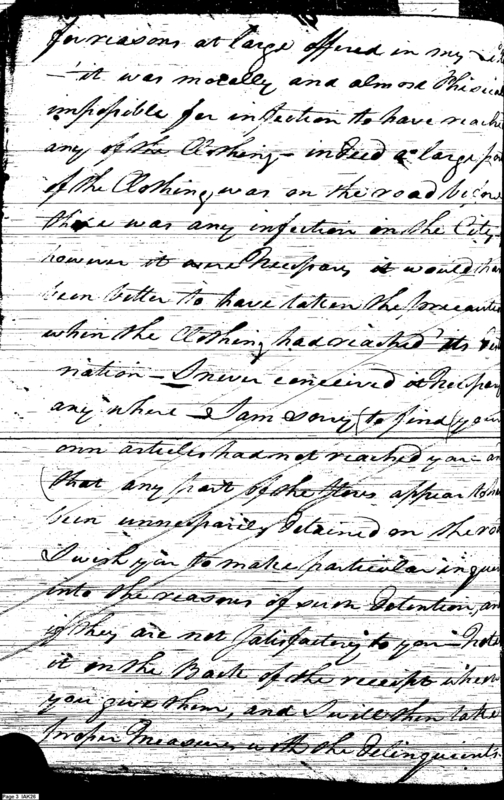 for reasons at large offered in my
– it was morally and almost Phisical
impossible for infection to have reache
any of the Clothing – indeed a large
of the Clothing was on the road before
there was any infection in the City –
however it were Necessary it would
been better to have taken the precautio
when the Clothing had reached its
nation – I never conceived it Necessary
any where – I am sorry (to find) your
own articles had not reached you – an
(that any part of the Stores appear to
been unnecessarily detained on the
I wish you to make particular inqui
into the reasons of such detention, an
if they are not satisfactory to you – Note
it on the Back of the receipt when
you give them, and I will then take
proper Measures with the delinquents
Page 3 IAK26